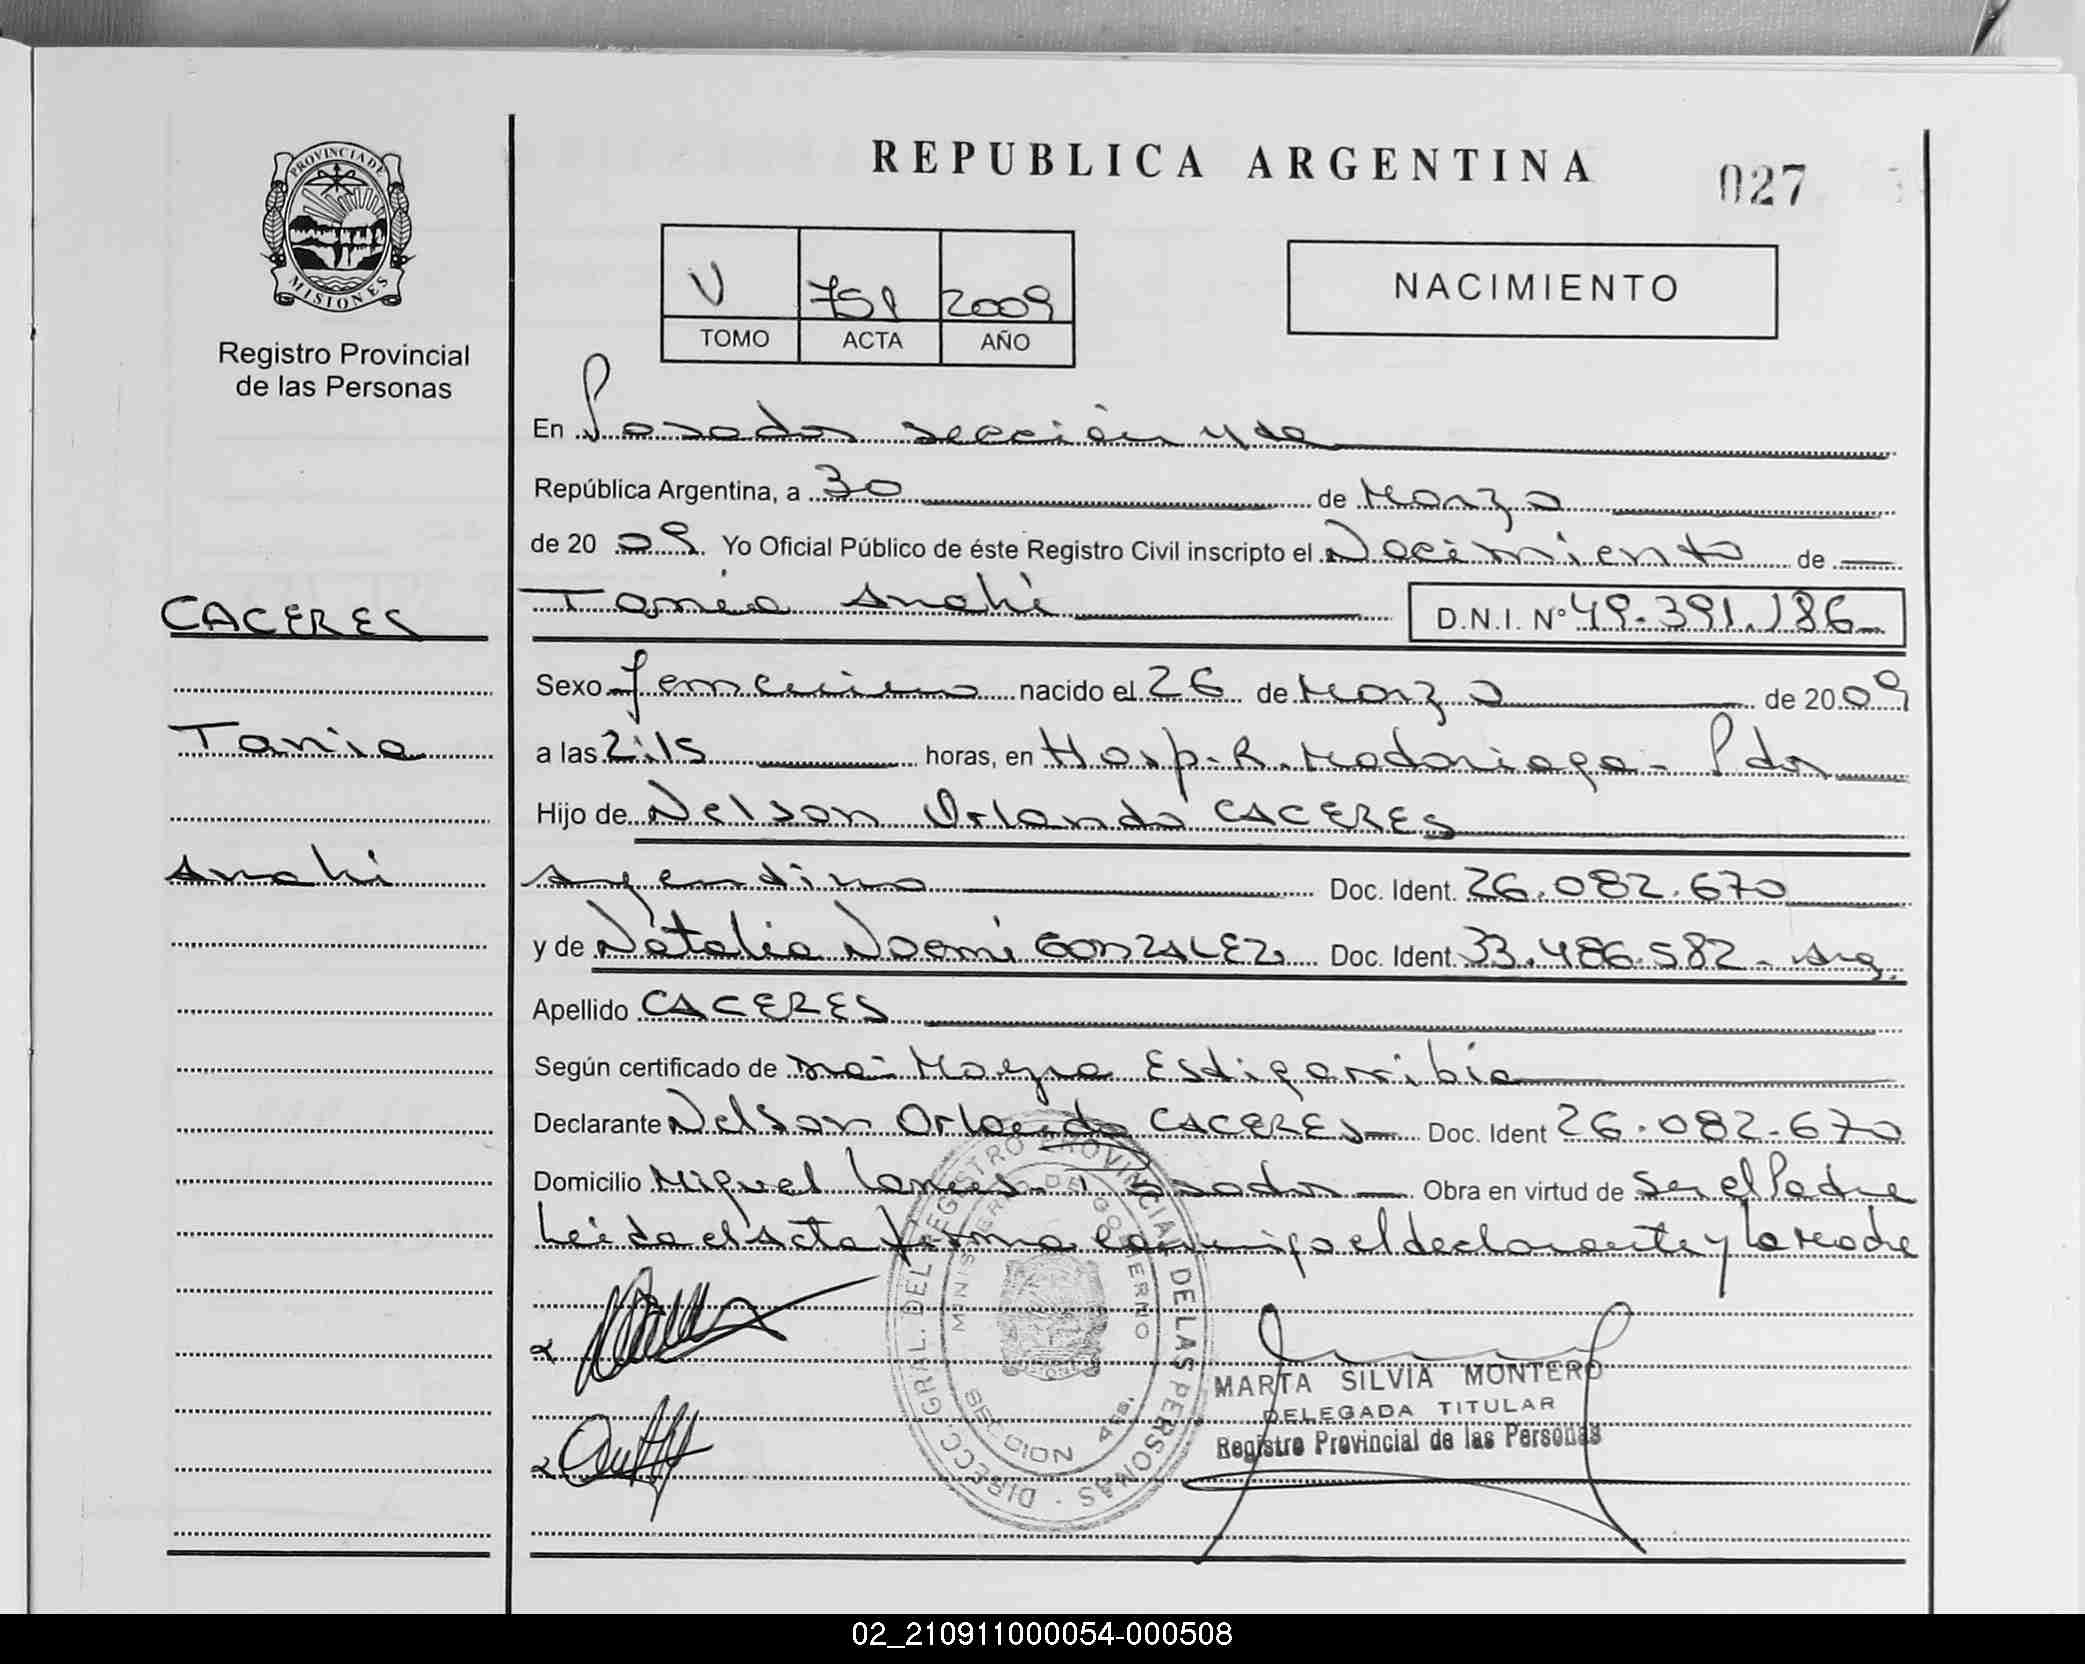 REPUBLICA ARGENTINA
027
PROVINCIA DE
MISIONES
Registro Provincial
de las Personas
V 751 2009
TOMO ACTA AÑO
NACIMIENTO
En Posadas sección 4ta
República Argentina, a 30 de Marzo
de 2009 Yo Oficial Público de éste Registro Civil inscripto el Nacimiento de
CACERES
Tania Anahi
Tania Anahi D.N.I. Nº 49.391.186
Sexo femenino nacido el 26 de Marzo de 2009
a las 21:15 horas, en Hosp. R. Madariaga - Pdas
Hijo de Nelson Orlando CACERES
Argentino Doc. Ident. 26.082.670
y de Natalia Noemi GONZALEZ Doc. Ident. 33.486.582 - Arg.
Apellido CACERES
Según certificado de Estigarribia
Declarante Nelson Orlando CACERES Doc. Ident 26.082.670
Domicilio Miguel Lanus Posadas Obra en virtud de ser el Padre
Leida el Acta firma conmigo el declarante y la Madre
DIRECC. GRAL. DEL REGISTRO PROVINCIAL DE LAS PERSONAS
MINISTERIO DE GOBIERNO
SECCION 4ta.
MARTA SILVIA MONTERO
DELEGADA TITULAR
Registro Provincial de las Personas
02_210911000054-000508